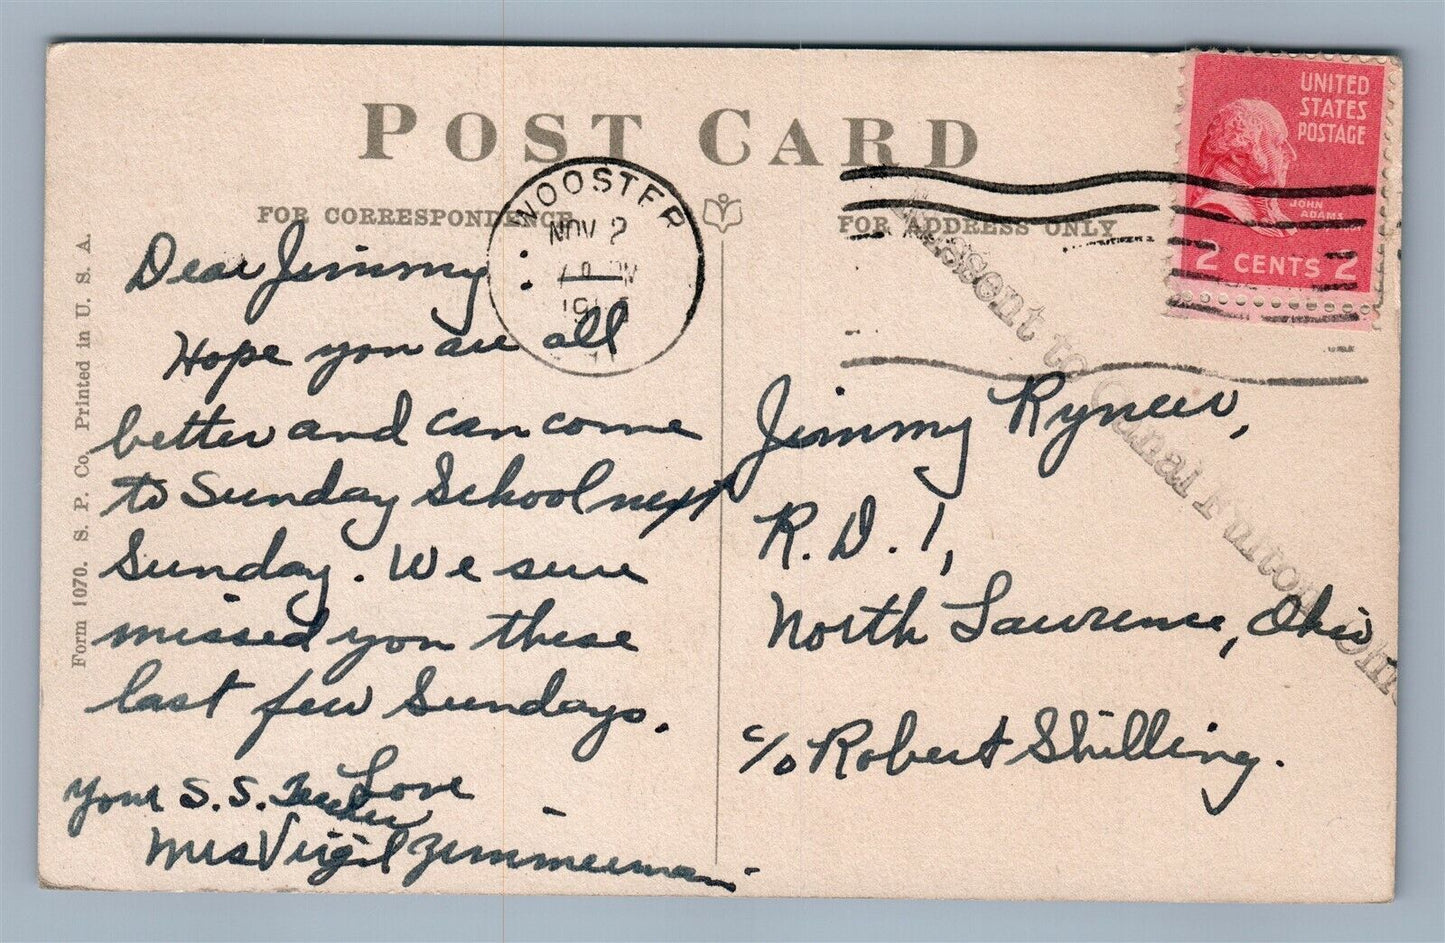 POST CARD
FOR CORRESPONDENCE
FOR ADDRESS ONLY
Form 1070. S. P. Co. Printed in U. S. A.
WOOSTER
NOV 2
UNITED
STATES
POSTAGE
JOHN
ADAMS
2 CENTS 2
Missent to Canal Fulton, Ohio
Dear Jimmy
Hope you are all
better and can come
to Sunday School next
Sunday. We sure
missed you these
last few Sundays.
Love
Your S. S. Teacher
Mrs Virgil Zimmerman
Jimmy Rynear,
R. D. 1,
North Lawrence, Ohio
c/o Robert Shilling.